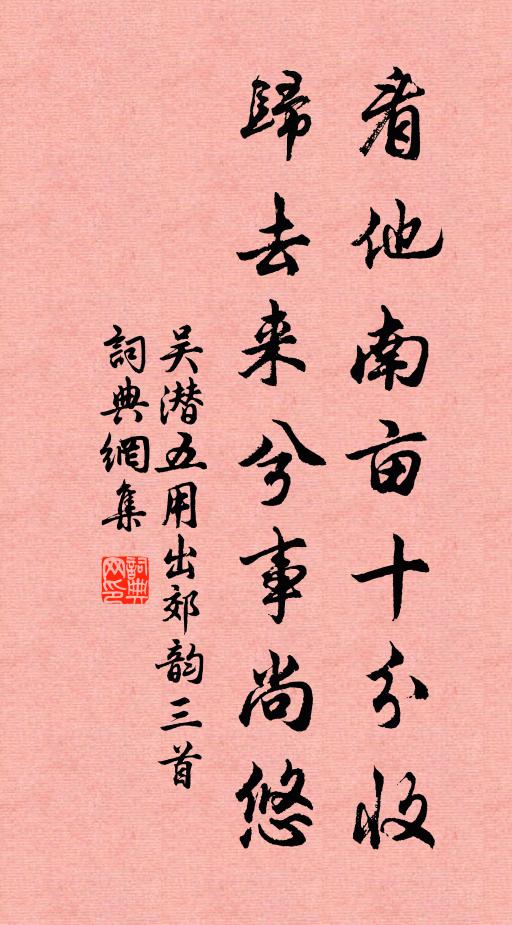 看他南亩十分收
歸去来兮事尚悠
吴潜五用出郊韵三首
詞典網集
詞典网印